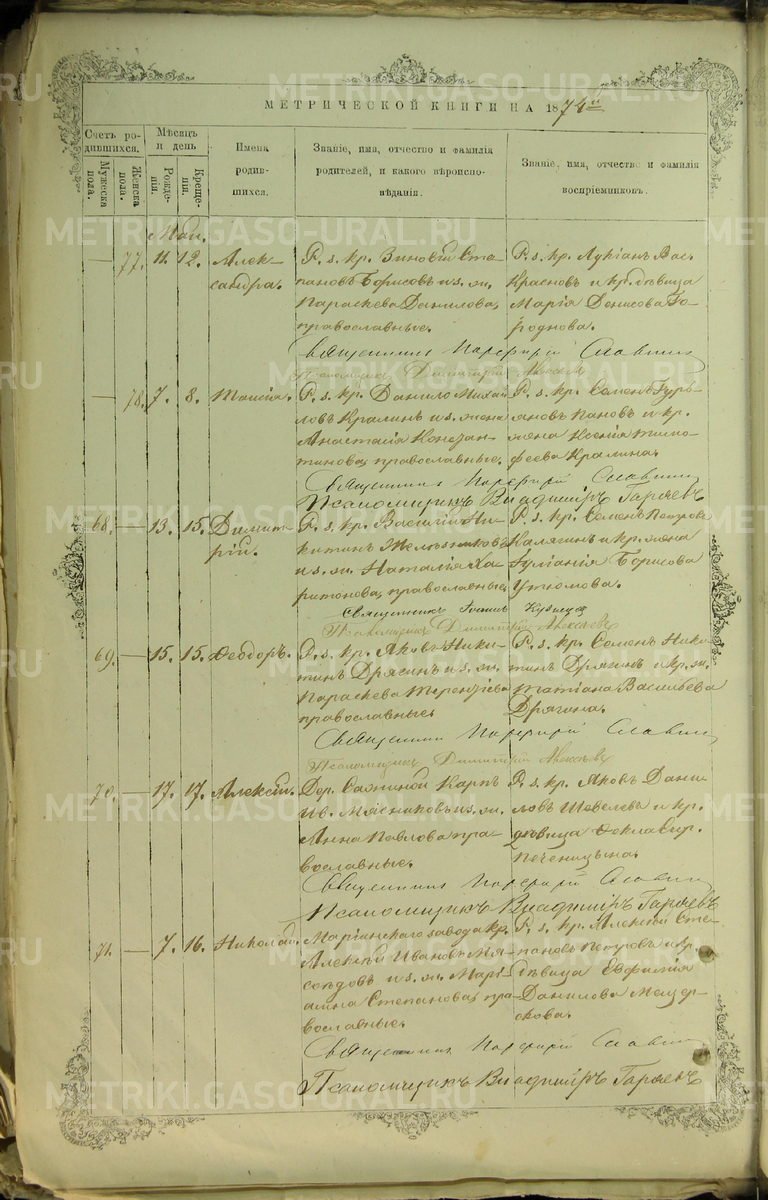 МЕТРИЧЕСКОЙ КНИГИ НА 1874
Счетъ родившихся.
Мужеска пола.
Женска пола.
Мѣсяцъ и день
Рожденія.
Крещенія.
Имена родившихся.
Званіе, имя, отчество и фамилія родителей, и какого вѣроисповѣданія.
Званіе, имя, отчество и фамилія воспріемниковъ.
Май.
— 77. 11. 12. Александра.
Р. з. кр. Зиновій Сте-
пановъ Борисовъ и з. ж.
Параскева Данилова,
православные.
Р. з. кр. Лукіанъ Вас.
Красновъ и кр. дѣвица
Марія Денисова
Священникъ Порфирій Славнинъ
Псаломщикъ Димитрій Алексѣевъ
— 78. 7. 8. Таисія.
Р. з. кр. Данило Михай-
ловъ Кралинъ и з. жена
Анастасія Констан-
тинова, православные.
Р. з. кр. Семенъ Гурь-
яновъ Пановъ и кр.
жена Ксенія Тимо-
феева Кралина.
Священникъ Порфирій Славнинъ
Псаломщикъ Владиміръ Гаряевъ
68. — 13. 15. Димит-
рій.
Р. з. кр. Василій Ни-
китинъ Желѣзниковъ
и з. ж. Наталія Ха-
ритонова, православные.
Р. з. кр. Семенъ Петровъ
Калягинъ и кр. жена
Іуліанія Борисова
Утюмова.
Священникъ Іоаннъ
Псаломщикъ Димитрій Алексѣевъ
69. — 15. 15. Феодоръ.
Р. з. кр. Яковъ Ники-
тинъ Дрягинъ и з. ж.
Параскева Терентіева
православные
Р. з. кр. Семенъ Ники-
тинъ Дрягинъ и кр. ж.
Татіана Васильева
Дрягина.
Священникъ Порфирій Славнинъ
Псаломщикъ Димитрій Алексѣевъ
70. — 17. 17. Алексій.
Дер. Сажиной Карпъ
Ив. Мясниковъ и з. ж.
Анна Павлова пра-
вославные.
Р. з. кр. Яковъ Дани-
ловъ Шевелевъ и кр.
дѣвица
Печеницына.
Священникъ Порфирій Славнинъ
Псаломщикъ Владиміръ Гаряевъ
71. — 7. 16. Николай.
Маріинскаго завода кр.
Алексій Ивановъ Мя-
соѣдовъ и з. ж. Марі-
анна Степанова, пра-
вославные.
Р. з. кр. Алексій Сте-
пановъ Петровъ и кр.
дѣвица Евфимія
Данилова
Священникъ Порфирій Славнинъ
Псаломщикъ Владиміръ Гаряевъ
METRIKI.GASO-URAL.RU